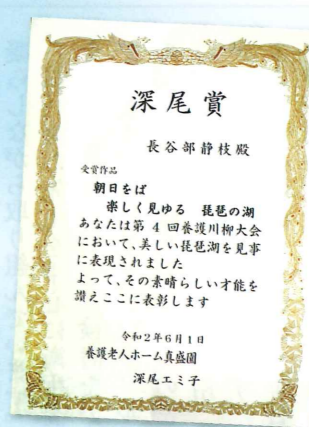 深尾賞
長谷部静枝殿
受賞作品
朝日をば
楽しく見ゆる 琵琶の湖
あなたは第 4 回養護川柳大会
において、美しい琵琶湖を見事
に表現されました
よって、その素晴らしい才能を
讃えここに表彰します
令和2年6月1日
養護老人ホーム真盛園
深尾エミ子